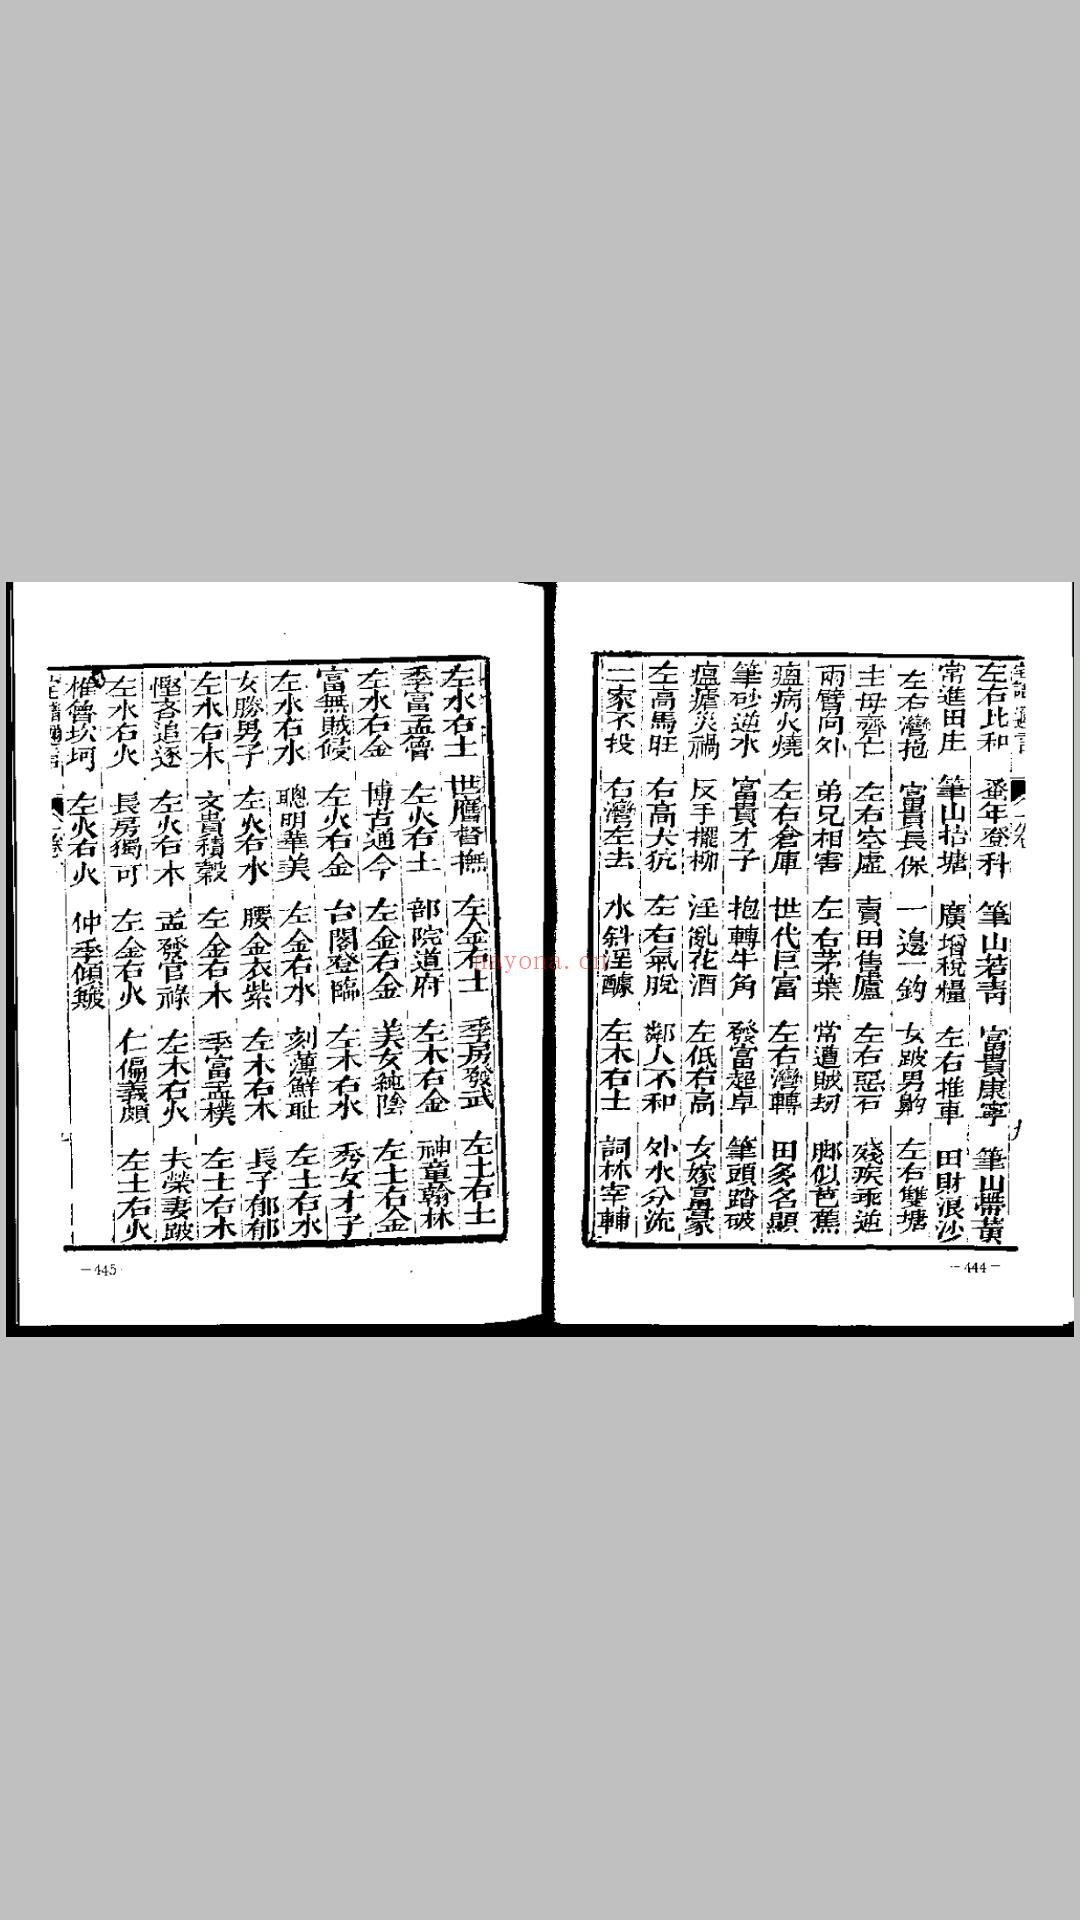 左右比和 番年登科 筆山若青 富貴康寧 筆山幪黃
常進田庄 筆山枱塘 廣增稅糧 左右推車 田財浪沙
左右灣抱 富貴長保 一邊一鈎 女跛男 左右雙塘
主母齊亡 左右空虛 賣田售廬 左右惡石 殘疾乖逆
兩臂向外 弟兄相害 左右茅葉 常遭賊刧 脚似芭蕉
瘟病火燒 左右倉庫 世代巨富 左右灣轉 田多名顯
筆砂逆水 富貴才子 抱轉牛角 發富超卓 筆頭踏破
瘟瘧災禍 反手擺柳 淫亂花酒 左低右高 女嫁富豪
左高馬旺 右高犬狂 左右氣脫 鄰人不和 外水分流
二家不投 右灣左去 水斜淫醵 左木右土 詞林宰輔
—444—
左水右土 世膺督撫 左金右土 季房發武 左土右土
季富孟魯 左火右土 部院道府 左木右金 神童翰林
左水右金 博古通今 左金右金 美女純陰 左土右金
富無賊侵 左火右金 台閣登臨 左木右水 秀女才子
左水右水 聰明華美 左金右水 刻薄鮮耻 左土右水
女勝男子 左火右水 腰金衣紫 左木右木 長子郁郁
左水右木 文貴積穀 左金右木 季富孟樸 左土右木
慳吝追逐 左火右木 孟發官祿 左木右火 夫榮妻跛
左水右火 長房獨可 左金右火 仁偏義頗 左土右火
椎魯坎坷 左火右火 仲季傾皺
—445
nayona.cn